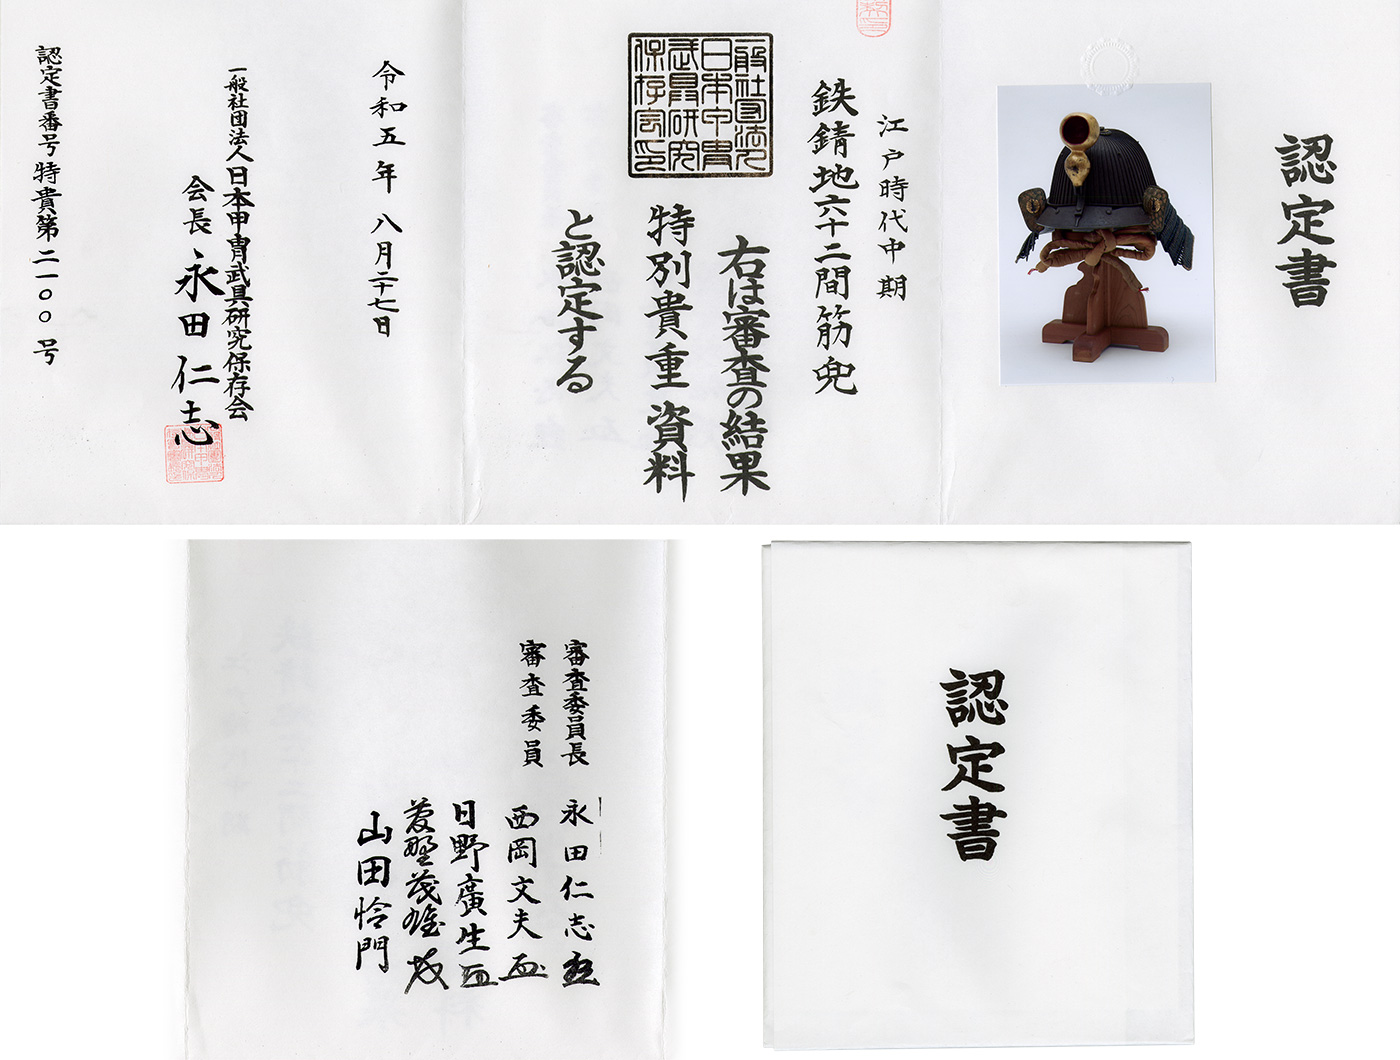 認定書
江戸時代中期
鉄錆地六十二間筋兜
右は審査の結果
特別貴重資料
と認定する
一般社団法人
日本甲冑
武具研究
保存会印
令和五年八月二十七日
一般社団法人日本甲冑武具研究保存会
会長永田仁志
認定書番号特貴第二一〇〇号
審査委員長 永田仁志
審査委員 西岡文夫
日野廣生
山田怜門
認定書